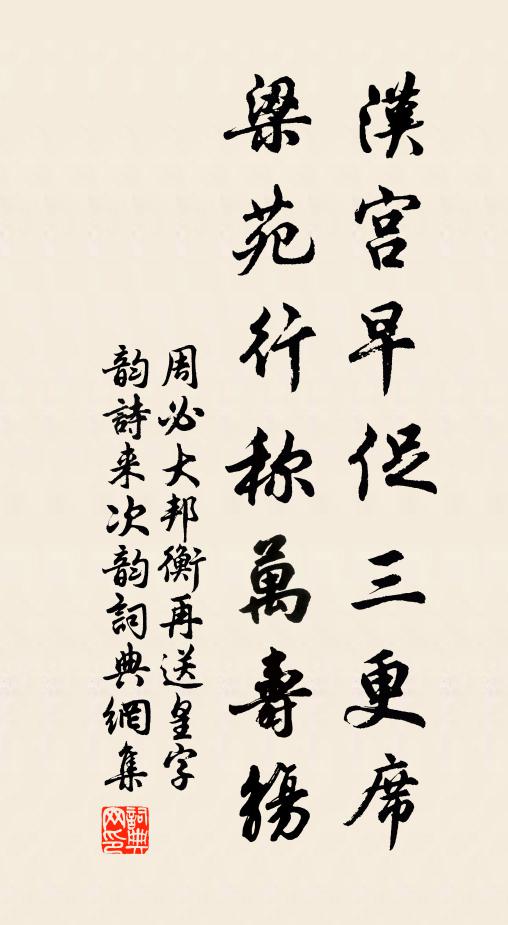 漢宮早促三更席
梁苑行称萬壽觴
周必大邦衡再送皇字
韵詩来次韵詞典網集
詞典
网印